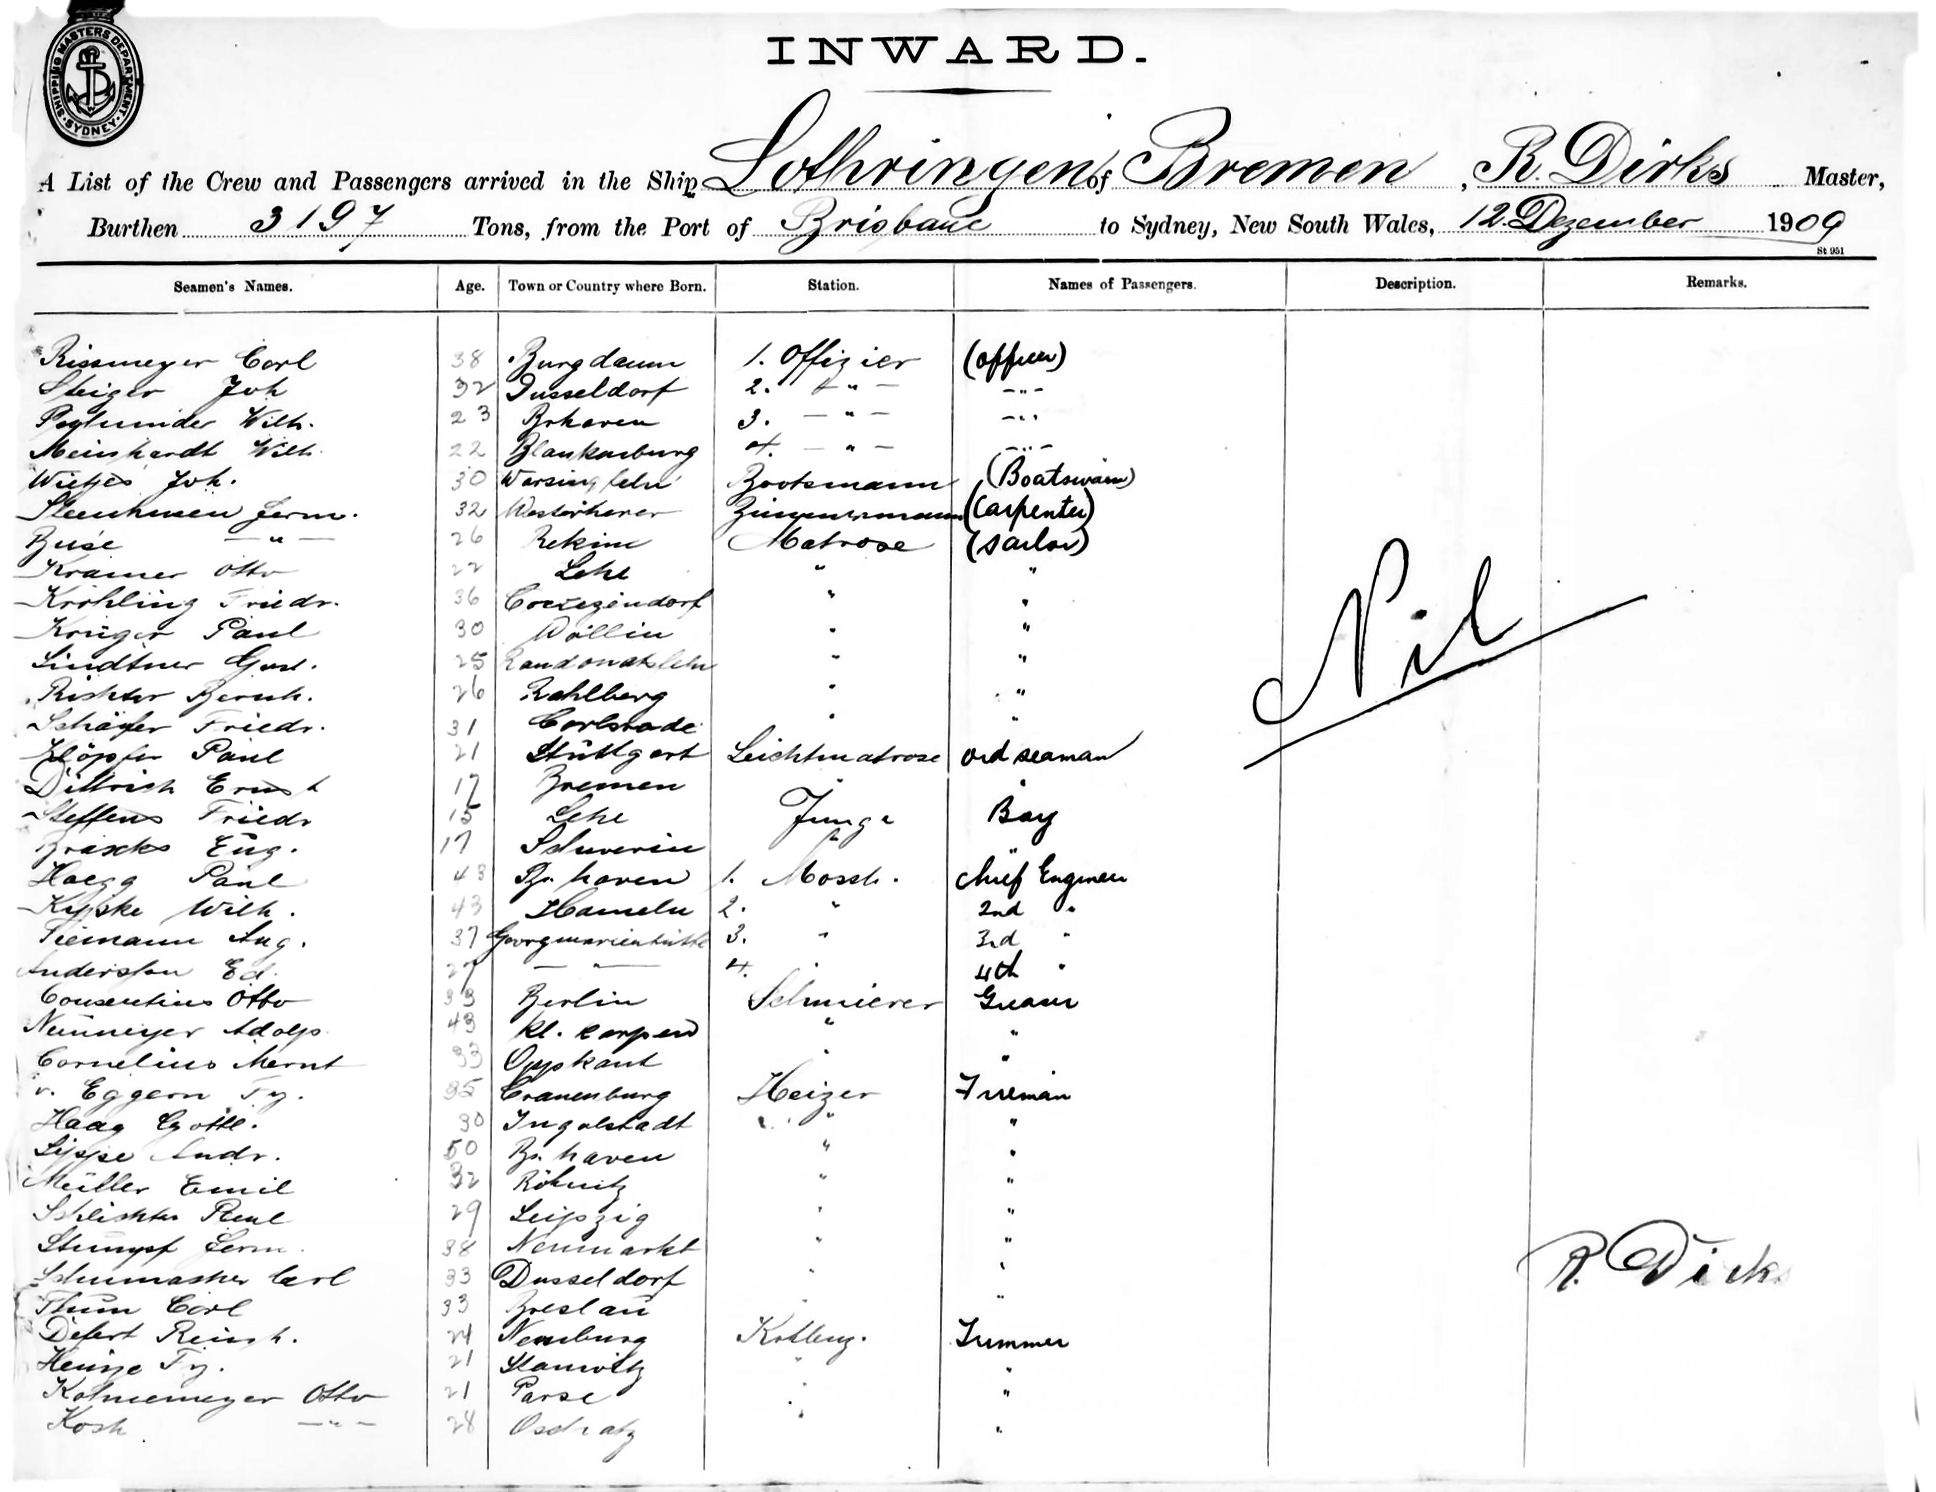 SHIPPING MASTERS DEPARTMENT. SYDNEY
INWARD.
A List of the Crew and Passengers arrived in the Ship Lothringen of Bremen, R. Dirks Master,
Burthen 3197 Tons, from the Port of Brisbane to Sydney, New South Wales, 12. Dezember 1909
St 951
Seamen's Names. Age. Town or Country where Born. Station. Names of Passengers. Description. Remarks.
Rissmeyer Carl 38 Burgdamm 1. Offizier (officer)
Steiger Joh 32 Dusseldorf 2. - " - - " -
Wilh. 23 Brhaven 3. - " - - " -
Meinhardt Wilh. 22 Blankenburg 4. - " - - " -
Wietjes Joh. 30 Warsingfehn Bootsmann (Boatswain)
Herm. 32 Zimmermann (Carpenter)
Buse - " - 26 Matrose (sailor)
Kramer Otto 22 Lehe " "
Krohling Friedr. 36 " "
Krüger Paul 30 Wollin " "
Lindtner Gust. 25 " "
Richter Bernh. 26 Kahlberg " "
Schäfer Friedr. 31 Carlsrode " "
Klöpfer Paul 21 Stuttgart Leichtmatrose ord seaman
Dittrich Ernst 17 Bremen " "
Steffens Friedr 15 Lehe Junge Boy
Eug. 17 Schwerin " "
Haegg Paul 43 Br. haven 1. Masch. chief Engineer
Kypke Wilh. 43 Hameln 2. " 2nd "
Tiemann Aug. 37 Georgmarienhütte 3. " 3rd "
Ed. 27 - " - 4. " 4th "
Consentius Otto 33 Berlin Schmierer Greaser
Neumeyer Adolp. 43 Kl. Karpen " "
Cornelius 33 " "
v. Eggern Fr. 35 Cranenburg Heizer Fireman
Haag Gottl. 30 Ingolstadt " "
Lippe Andr. 50 Br. haven " "
Müller Emil 32 " "
Schlichter Paul 29 Leipzig " "
Stumpf Herm. 38 Neumarkt " "
Schumacher Carl 33 Dusseldorf " "
Thum Carl 33 Breslau " "
Reinh. 24 Neuburg Trimmer
21 " "
Otto 21 " "
Koch - " - 28 Oschatz "
Nil
R. Dirks